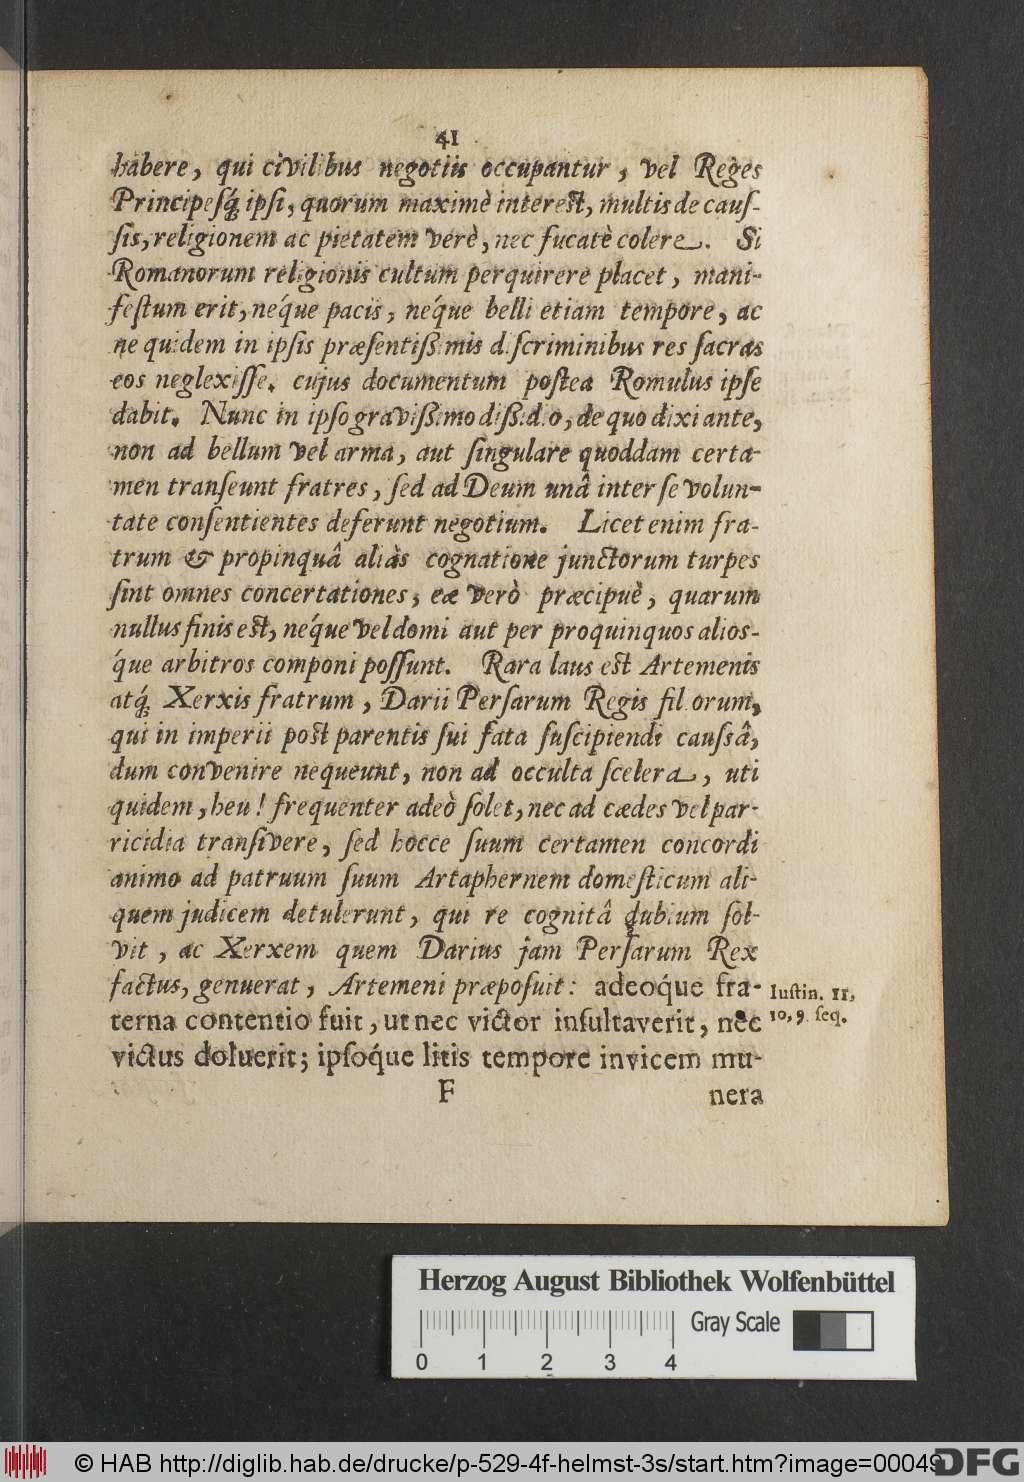 41
habere, qui civilibus negotiis occupantur, vel Reges
Principesq́; ipſi, quorum maximè intereſt, multis de cauſ-
ſis, religionem ac pietatem verè, nec fucatè colere. Si
Romanorum religionis cultum perquirere placet, mani-
feſtum erit, néque pacis, néque belli etiam tempore, ac
ne quidem in ipſis præſentißimis diſcriminibus res ſacras
eos neglexiſſe. cujus documentum poſtea Romulus ipſe
dabit. Nunc in ipſo gravißimo dißidio, de quo dixi ante,
non ad bellum vel arma, aut ſingulare quoddam certa-
men tranſeunt fratres, ſed ad Deum unâ inter ſe volun-
tate conſentientes deferunt negotium. Licet enim fra-
trum & propinquâ aliàs cognatione junctorum turpes
ſint omnes concertationes, eæ verò præcipuè, quarum
nullus finis eſt, néque vel domi aut per proquinquos alios-
q́ue arbitros componi poſſunt. Rara laus eſt Artemenis
atq́; Xerxis fratrum, Darii Perſarum Regis filiorum,
qui in imperii poſt parentis ſui fata ſuſcipiendi cauſsâ,
dum convenire nequeunt, non ad occulta ſcelera, uti
quidem, heu! frequenter adeò ſolet, nec ad cædes vel par-
ricidia tranſivere, ſed hocce ſuum certamen concordi
animo ad patruum ſuum Artaphernem domeſticum ali-
quem judicem detulerunt, qui re cognitâ dubium ſol-
vit, ac Xerxem quem Darius jam Perſarum Rex
factus, genuerat, Artemeni præpoſuit: adeoq́ue fra-
terna contentio fuit, ut nec victor inſultaverit, nec
victus doluerit; ipſoq́ue litis tempore invicem mu-
Iuſtin. 11,
10, 9. ſeq.
F
nera
Herzog August Bibliothek Wolfenbüttel
Gray Scale
0 1 2 3 4
© HAB http://diglib.hab.de/drucke/p-529-4f-helmst-3s/start.htm?image=00049
DFG